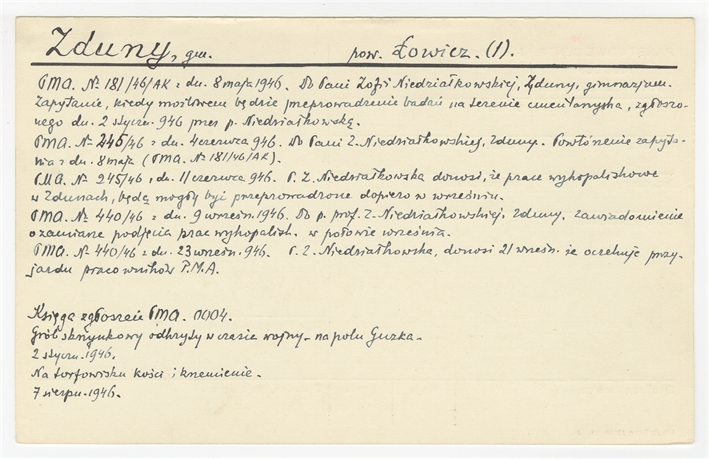 Zduny, gm. pow. Łowicz. (1).
PMA. № 181/46/AK z dn. 8 maja 1946. Do Pani Zofji Niedziałkowskiej, Zduny, gimnazjum.
Zapytanie, kiedy możliwem będzie przeprowadzenie badań na terenie cmentarzyska, zgłoszo-
nego dn. 2 stycz. 946 przez p. Niedziałkowską.
PMA. № 245/46 z dn. 4 czerwca 946. Do Pani Z. Niedziałkowskiej, Zduny. Powtórzenie zapyta-
nia z dn. 8 maja (PMA. № 181/46/AK).
PMA. № 245/46, dn. 11 czerwca 946. P. Z. Niedziałkowska donosi, że prace wykopaliskowe
w Zdunach, będą mogły być przeprowadzone dopiero w wrześniu.
PMA. № 440/46 z dn. 9 wrześn. 1946. Do p. prof. Z. Niedziałkowskiej, Zduny. Zawiadomienie
o zamiarze podjęcia prac wykopalisk. w połowie września.
PMA. № 440/46 z dn. 23 wrześn. 946. P. Z. Niedziałkowska, donosi 21 wrześn. że oczekuje przy-
jazdu pracowników P.M.A.
Księga zgłoszeń PMA. 0004.
Grób skrzynkowy odkryty w czasie wojny - na polu Guzka -
2 stycz. 1946.
Na torfowisku kości i krzemienie -
7 sierpn. 1946.